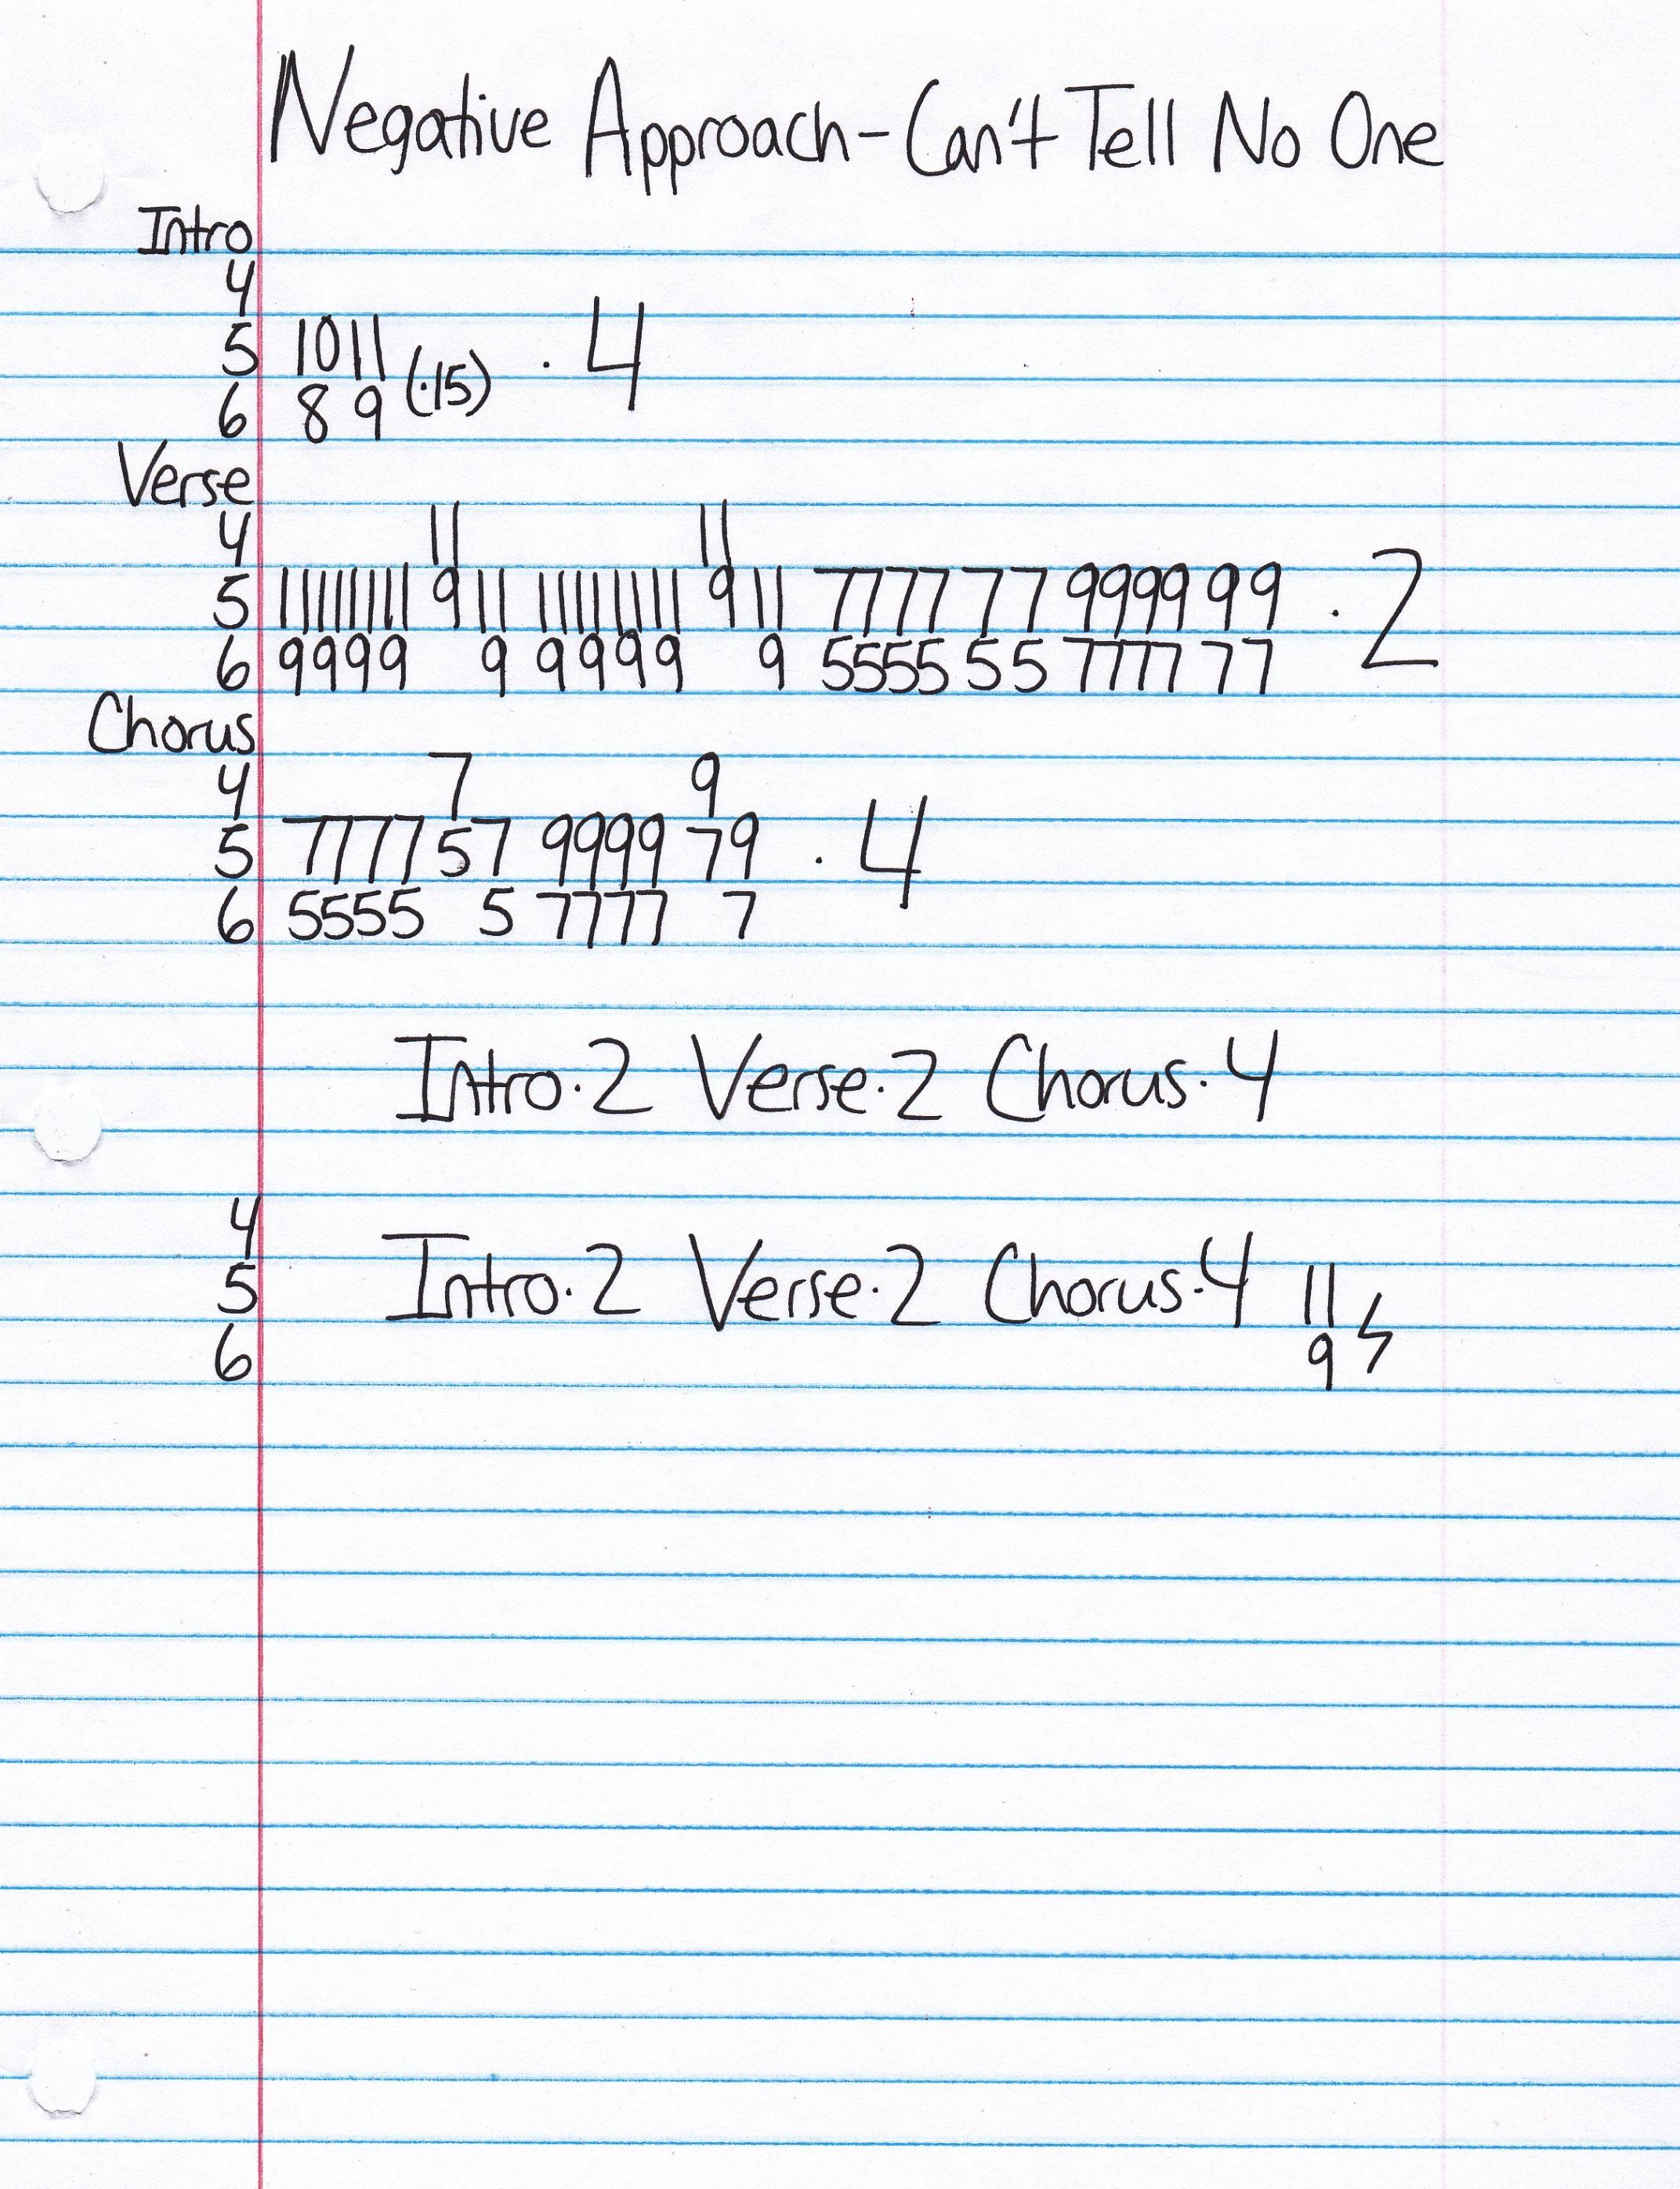 Negative Approach-Can't Tell No One
Intro
4
5 10 11 (·15) · 4
6 8 9
Verse
4 11 11
5 11 11 11 11 9 11 11 11 11 11 9 11 7777 77 9999 99 · 2
6 9999 9 9999 9 5555 55 7777 77
Chorus
4 7 9
5 7777 57 9999 79 · 4
6 5555 5 7777 7
Intro·2 Verse·2 Chorus·4
4
5 Intro·2 Verse·2 Chorus·4 11
6 9